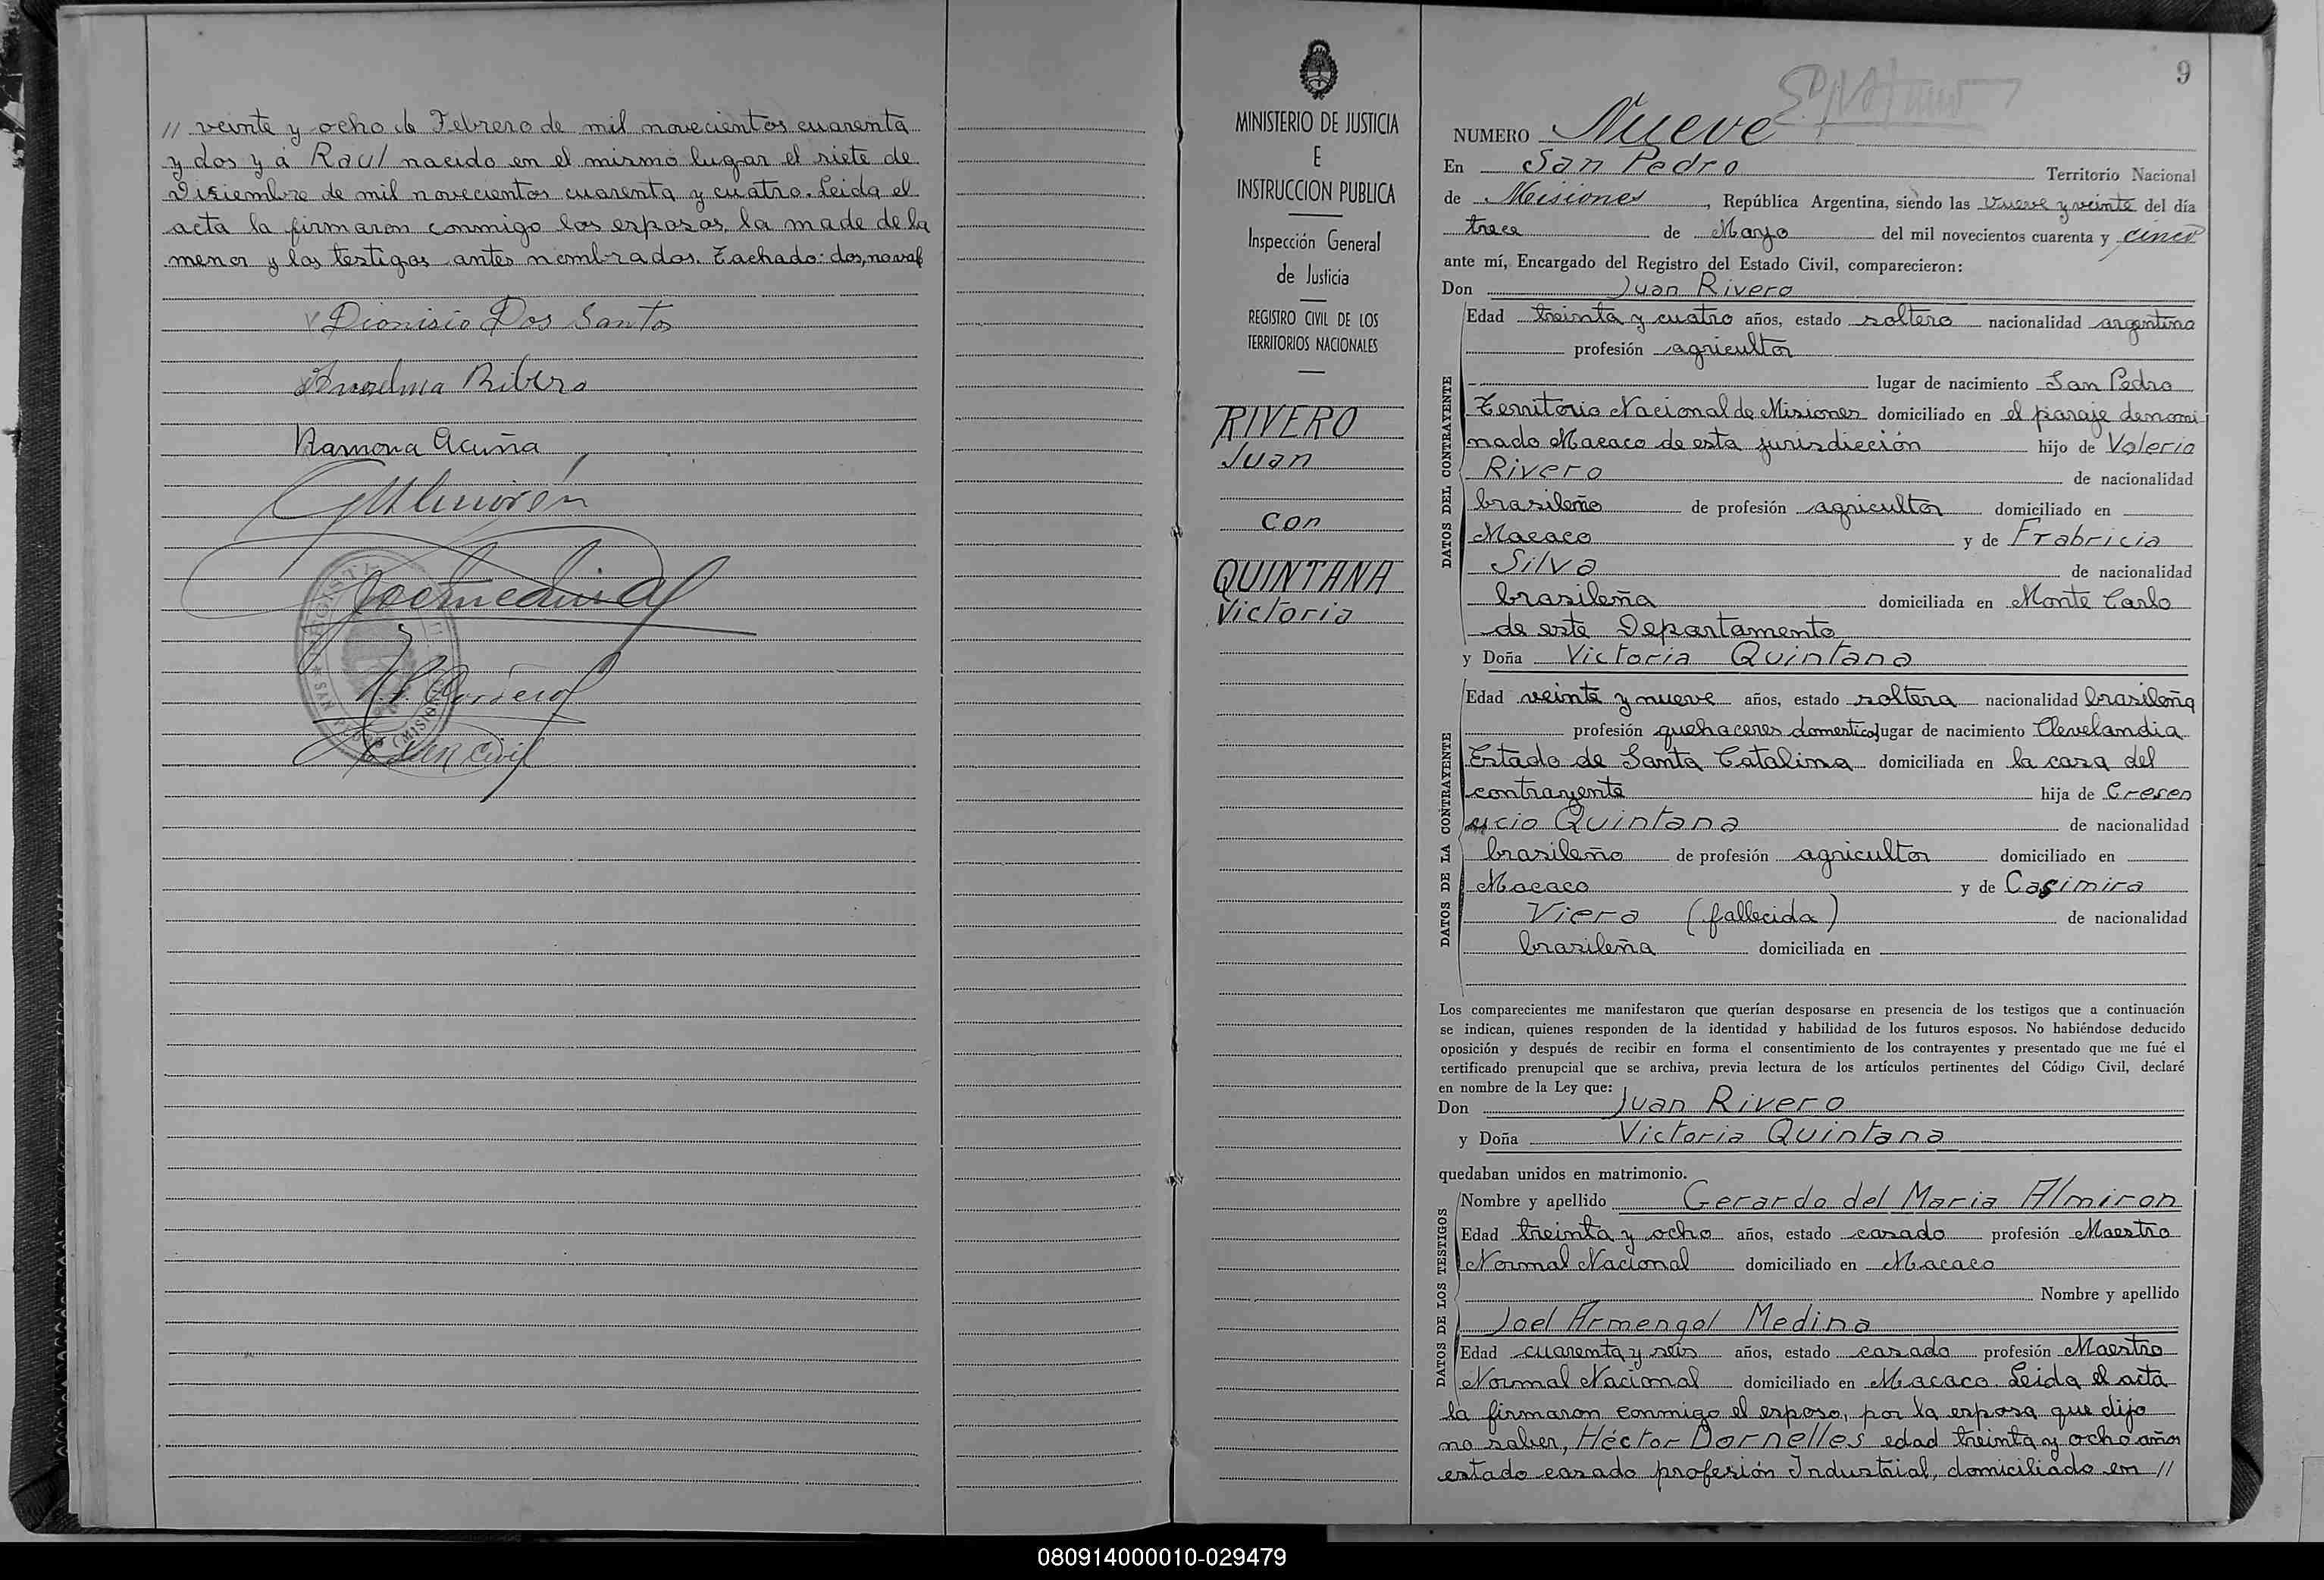 // veinte y ocho de Febrero de mil novecientos cuarenta
y dos y á Raul nacido en el mismo lugar el siete de
Diciembre de mil novecientos cuarenta y cuatro. Leida el
acta la firmaron conmigo los esposos, la made de la
menor y los testigos antes nombrados. Tachado: dos, no val
Dionisio Dos Santos
Anselma Ribero
Ramona Acuña
SAN PEDRO (MISIONES)
MINISTERIO DE JUSTICIA
E
INSTRUCCION PUBLICA
Inspección General
de Justicia
REGISTRO CIVIL DE LOS
TERRITORIOS NACIONALES
RIVERO
Juan
con
QUINTANA
Victoria
9
NUMERO Nueve
En San Pedro Territorio Nacional
de Misiones, República Argentina, siendo las nueve y veinte del día
trece de Mayo del mil novecientos cuarenta y cinco
ante mí, Encargado del Registro del Estado Civil, comparecieron:
Don Juan Rivero
DATOS DEL CONTRAYENTE
Edad treinta y cuatro años, estado soltero nacionalidad argentino
profesión agricultor
lugar de nacimiento San Pedro
Territorio Nacional de Misiones domiciliado en el paraje denomi
nado Macaco de esta jurisdicción hijo de Valerio
Rivero de nacionalidad
brasileño de profesión agricultor domiciliado en
Macaco y de Frabricia
Silva de nacionalidad
brasileña domiciliada en Monte Carlo
de este Departamento
y Doña Victoria Quintana
DATOS DE LA CONTRAYENTE
Edad veinte y nueve años, estado soltera nacionalidad brasileña
profesión quehaceres domesticos lugar de nacimiento Clevelandia
Estado de Santa Catalina domiciliada en la casa del
contrayente hija de Cresen
cio Quintana de nacionalidad
brasileño de profesión agricultor domiciliado en
Macaco y de Casimira
Viera (fallecida) de nacionalidad
brasileña domiciliada en
Los comparecientes me manifestaron que querían desposarse en presencia de los testigos que a continuación
se indican, quienes responden de la identidad y habilidad de los futuros esposos. No habiéndose deducido
oposición y después de recibir en forma el consentimiento de los contrayentes y presentado que me fué el
certificado prenupcial que se archiva, previa lectura de los artículos pertinentes del Código Civil, declaré
en nombre de la Ley que:
Don Juan Rivero
y Doña Victoria Quintana
quedaban unidos en matrimonio.
DATOS DE LOS TESTIGOS
Nombre y apellido Gerardo del Maria Almiron
Edad treinta y ocho años, estado casado profesión Maestro
Normal Nacional domiciliado en Macaco
Nombre y apellido
Joel Armengol Medina
Edad cuarenta y seis años, estado casado profesión Maestro
Normal Nacional domiciliado en Macaco. Leida el acta
la firmaron conmigo el esposo, por la esposa que dijo
no saber, Héctor Dornelles edad treinta y ocho años
estado casado profesión Industrial, domiciliado en //
080914000010-029479